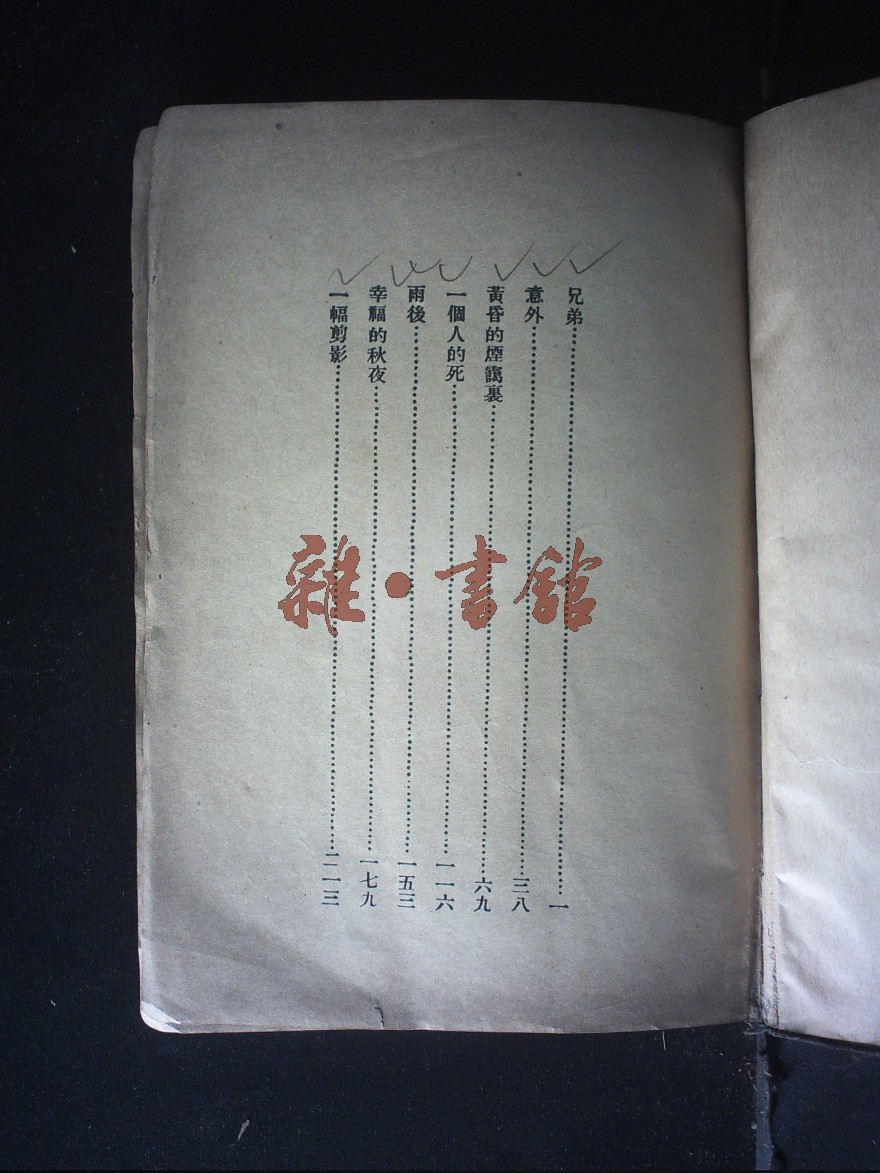 兄弟……一
意外……三八
黃昏的煙靄裏……六九
一個人的死……一一六
雨後……一五三
幸福的秋夜……一七九
一幅剪影……二一三
雜·書館